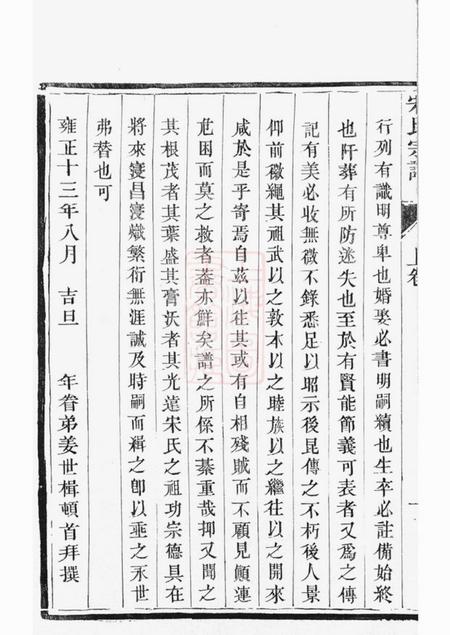 宋氏宗譜
上卷
行列有識明尊卑也婚娶必書明嗣續也生卒必註備始終
也阡葬有所防迷失也至於有賢能節義可表者又爲之傳
記有美必收無微不錄悉足以昭示後昆傳之不朽後人景
仰前徽繩其祖武以之敦本以之睦族以之繼往以之開來
咸於是乎寄焉自茲以往其或有自相殘賊而不顧見顚連
危困而莫之救者蓋亦鮮矣譜之所係不綦重哉抑又聞之
其根茂者其葉盛其膏沃者其光遠宋氏之祖功宗德具在
將來寖昌寖熾繁衍無涯誠及時嗣而緝之卽以垂之永世
弗替也可
雍正十三年八月 吉旦 年眷弟姜世楫頓首拜撰